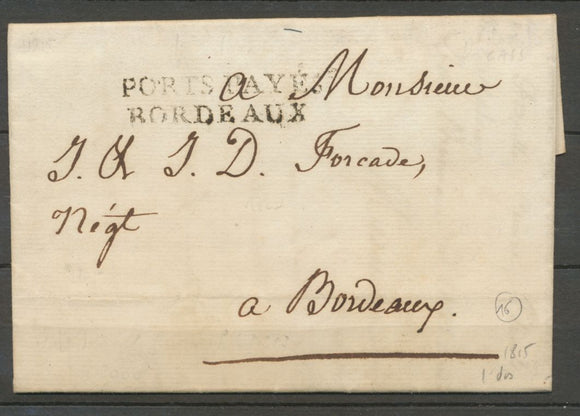 PORTS PAYÉS
BORDEAUX
a Monsieur
J. & J. D. Forcade,
Négt
a Bordeaux.
16
1815